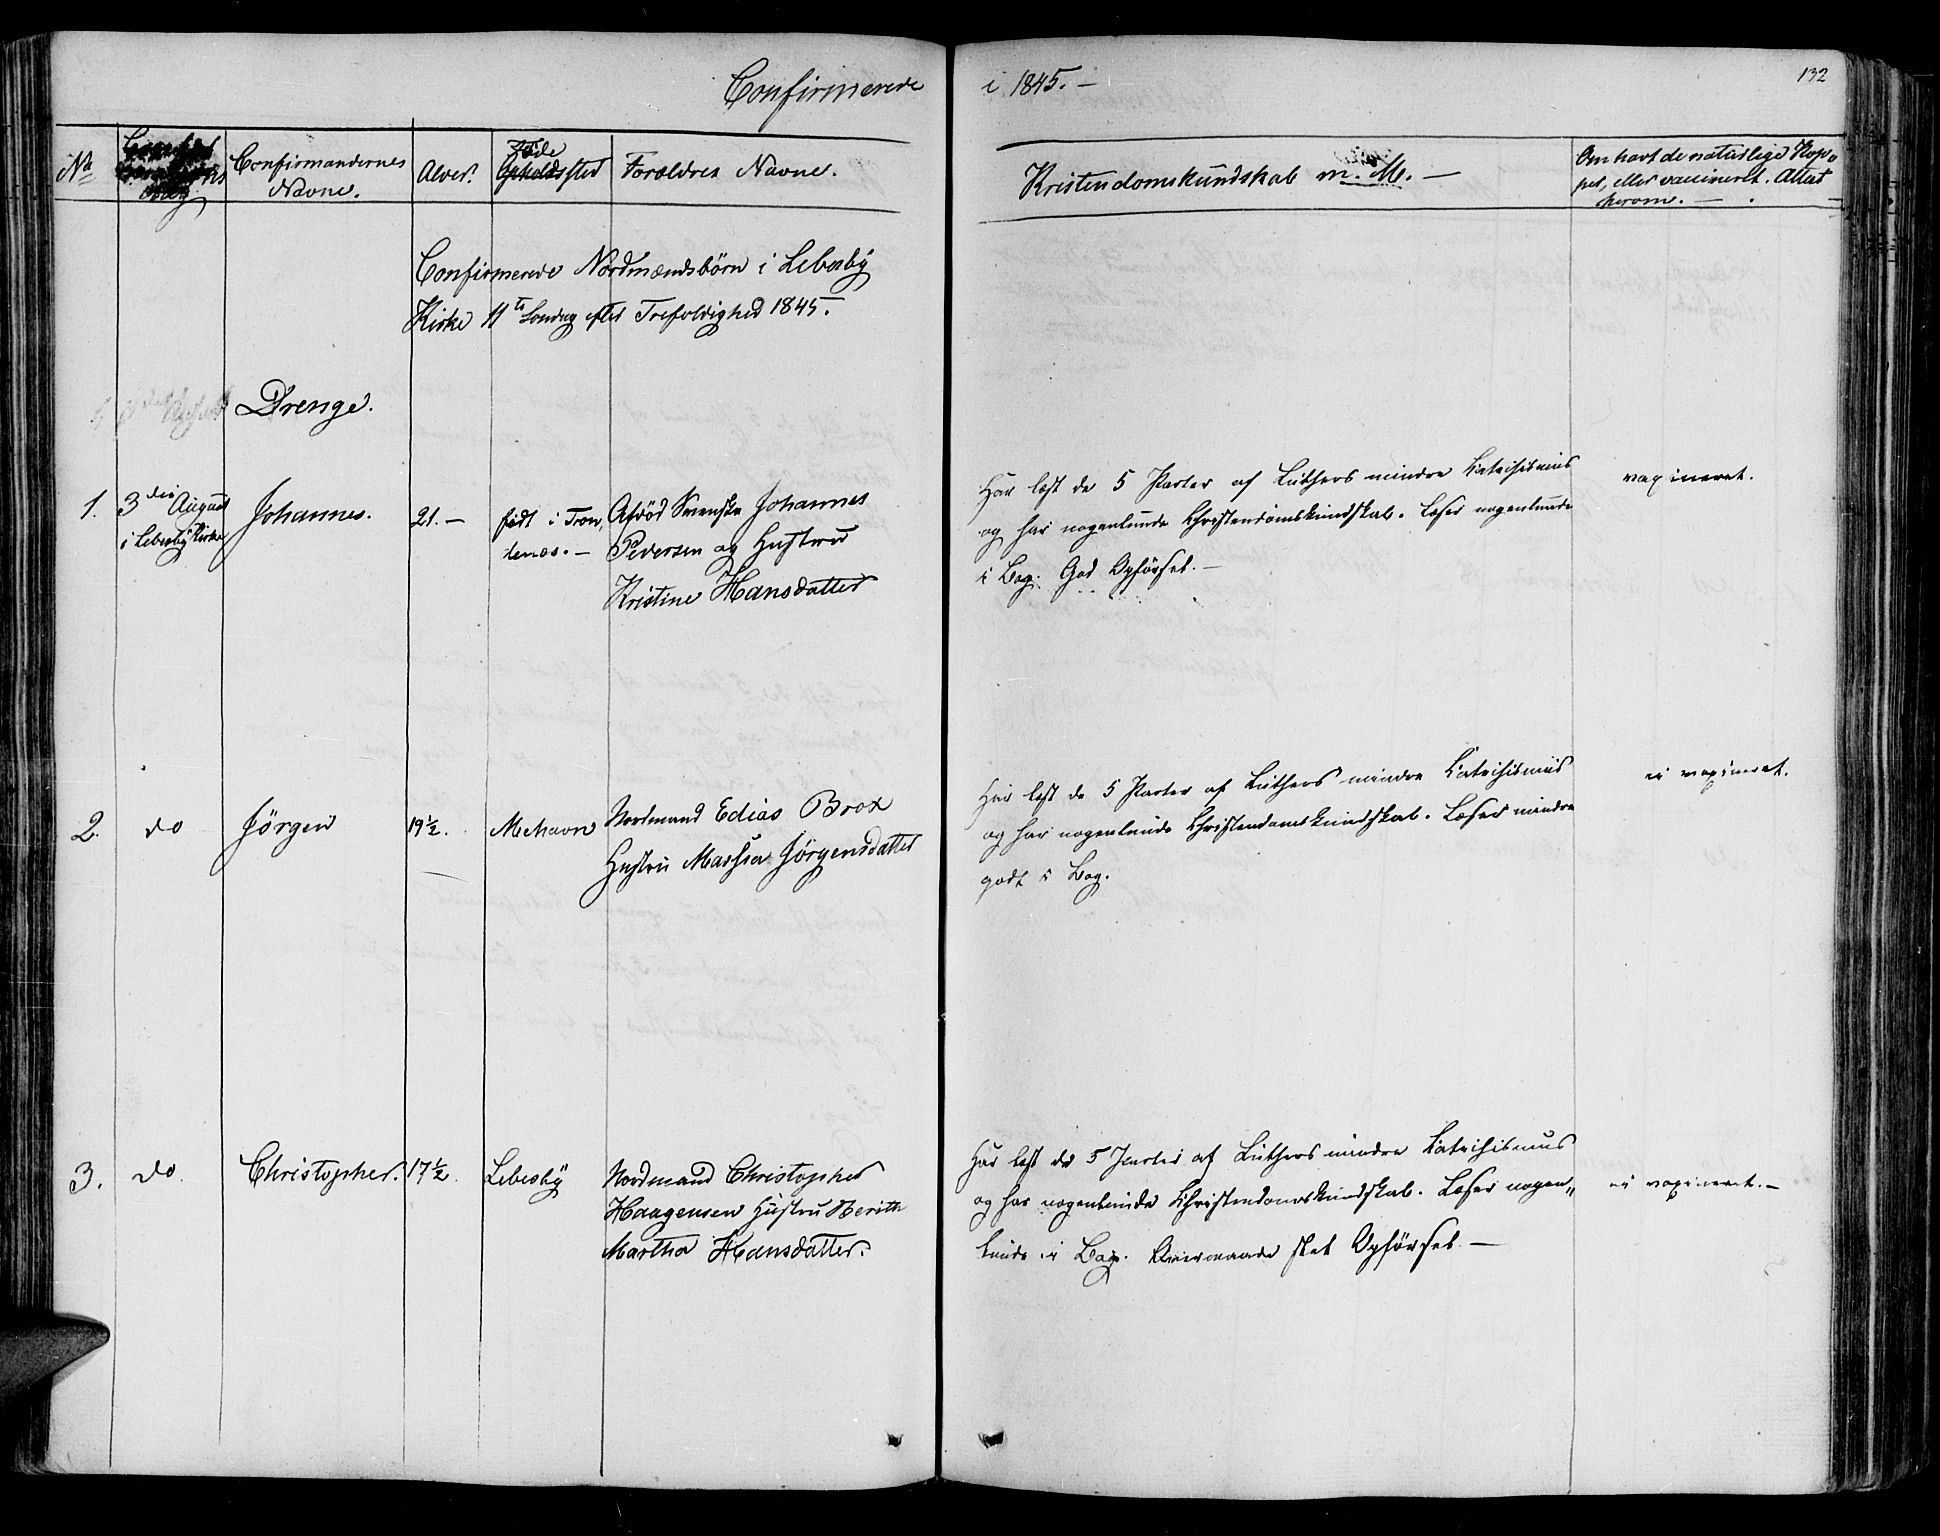 Confirmerede i 1845. —
132
No
Confirmandernes
Navne.
Alder.
Føde
Opholdssted
Forældres Navne.
Kristendomskundskab m. M. —
Om havt de naturlige Kop-
per, eller vaccineret. Attest
herom. —
Confirmerede Nordmændsbørn i Lebesby
Kirke 11te Søndag efter Trefoldighed 1845.
Drenge.
1. 3die August
i Lebesby Kirke
Johannes.
21. —
født i Tron
denæs. —
Afdød Svenske Johannes
Pedersen og Hustru
Kristine Hansdatter
Har læst de 5 Parter af Luthers mindre Katechismus
og har nogenlunde Christendomskundskab. Læser nogenlunde
i Bog. God Opførsel. —
vaxineret.
2. do
Jørgen
19½.
Mehavn
Nordmand Edias Brox
Hustru Marsia Jørgensdatter
Har læst de 5 Parter af Luthers mindre Katechismus
og har nogenlunde Christendomskundskab. Læser mindre
godt i Bog.
ei vaxineret.
3. do.
Christopher.
17½.
Lebesby
Nordmand Christopher
Haagensen Hustru Berith
Martha Hansdatter.
Har læst de 5 Parter af Luthers mindre Katechismus
og har nogenlunde Christendomskundskab. Læser nogen„
lunde i Bog. slet Opførsel. —
ei vaxineret. —